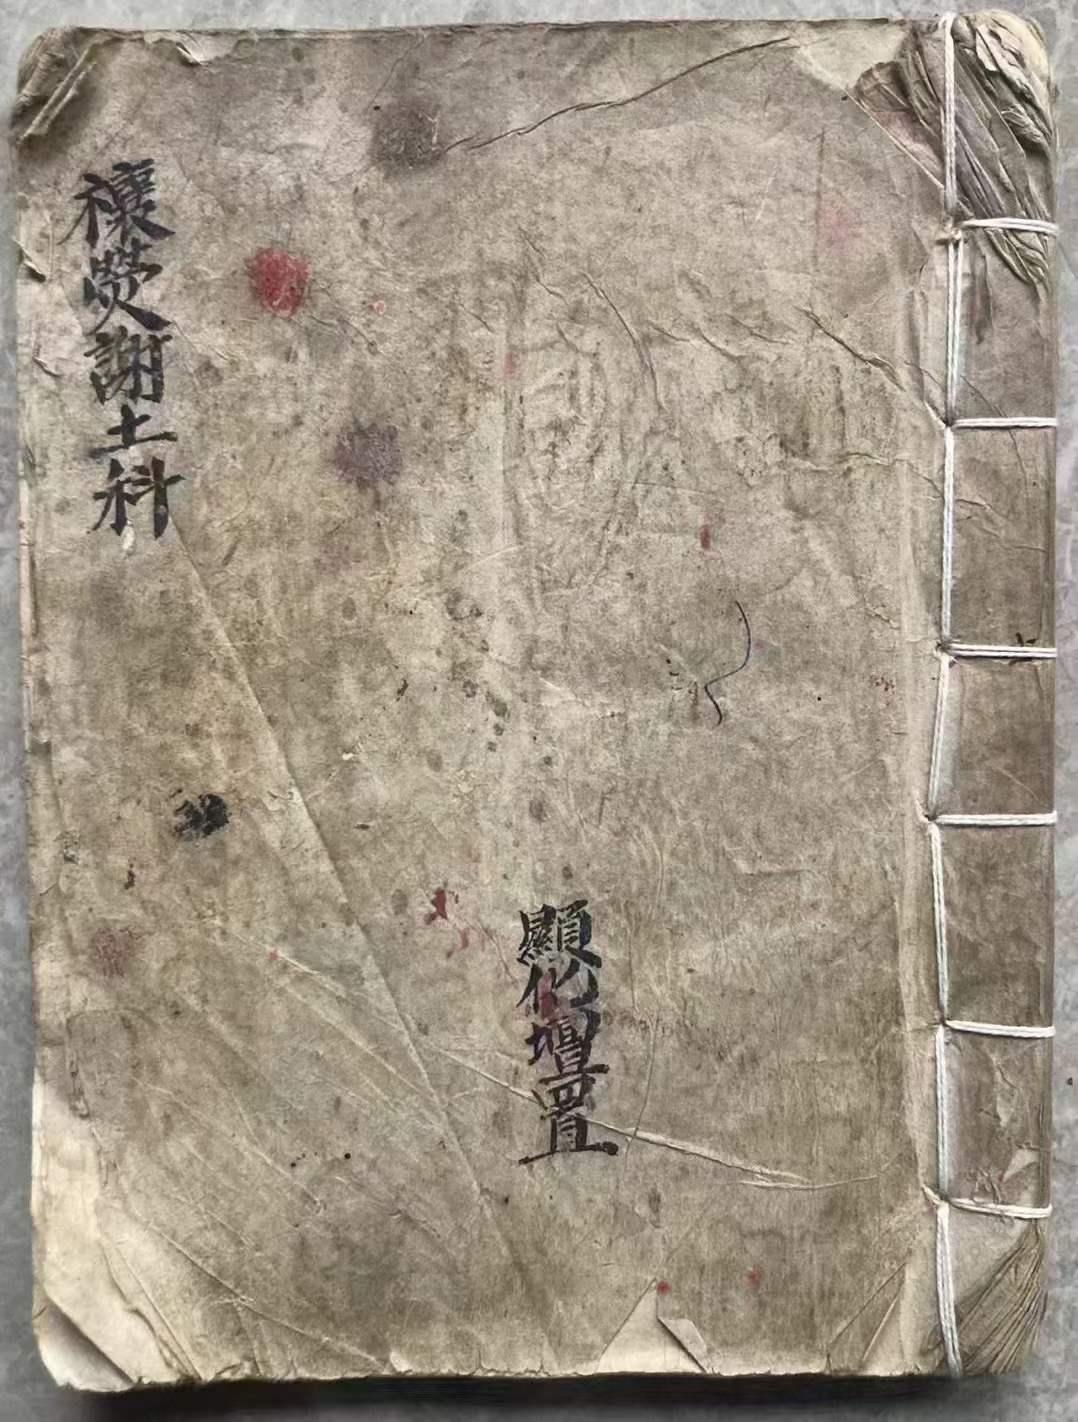 禳熒謝土科
顯壇置